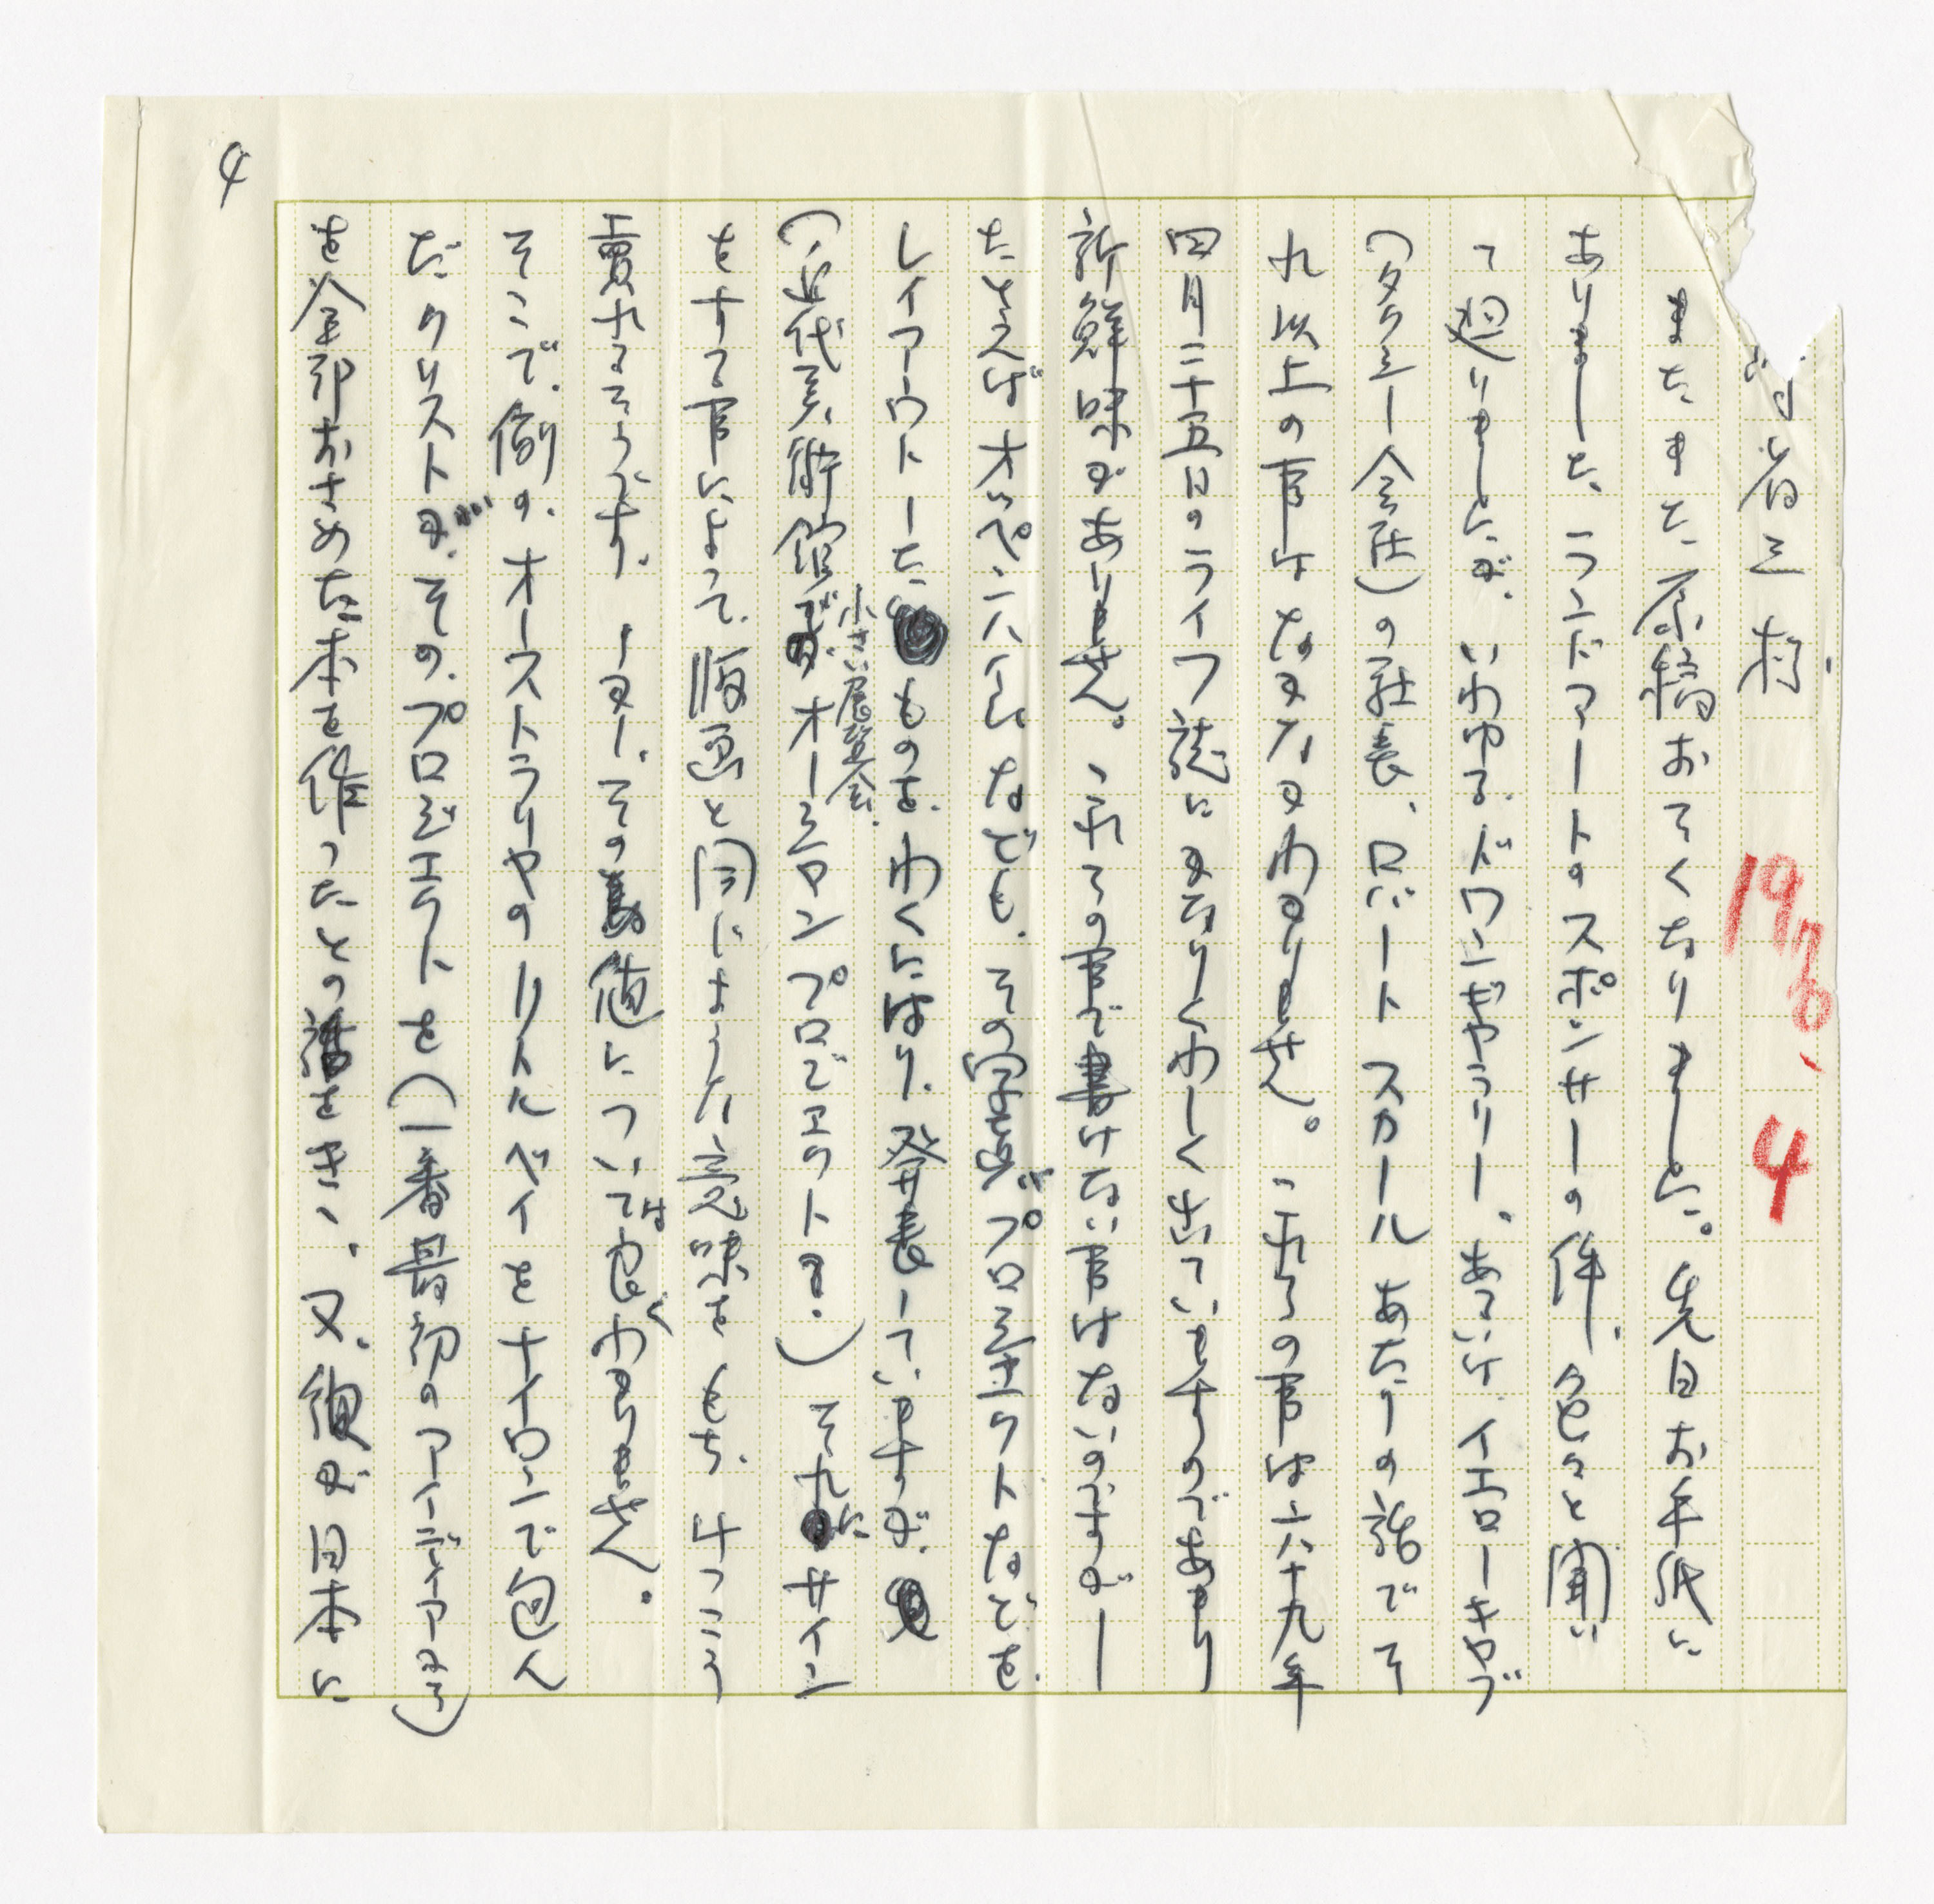 省三様
1970、4
またまた原稿おそくなりました。先日お手紙に
ありましたランドアートのスポンサーの件、色々と聞い
て廻りましたが、いわゆる、ドワンギャラリー、あるいは、イエローキャブ
(タクシー会社)の社長、ロバート スカールあたりの話でそ
れ以上の事はなかなかわかりません。これらの事は六十九年
四月二十五日のライフ誌にかなりくわしく出ていますのであまり
新鮮味がありません。これらの事で書けない事はないのですが―
たとえばオッペンハイムなども、その写真がプロジェクトなどを、
レイアウトしたものを、わくにはり、発表していますが、
(近代美術館で小さい展覧会、オーシャンプロジェクトか、)それにサイン
をする事によって、版画と同じような意味をもち、けっこう
売れるそうです。しかし、その価値については良くわかりません。
そこで、例の、オーストラリヤのリトルベイをナイロンで包ん
だクリストが、その、プロジェクトを(一番最初のアイディアから)
を全部おさめた本を作ったとの話をきき、又、彼が日本に
4